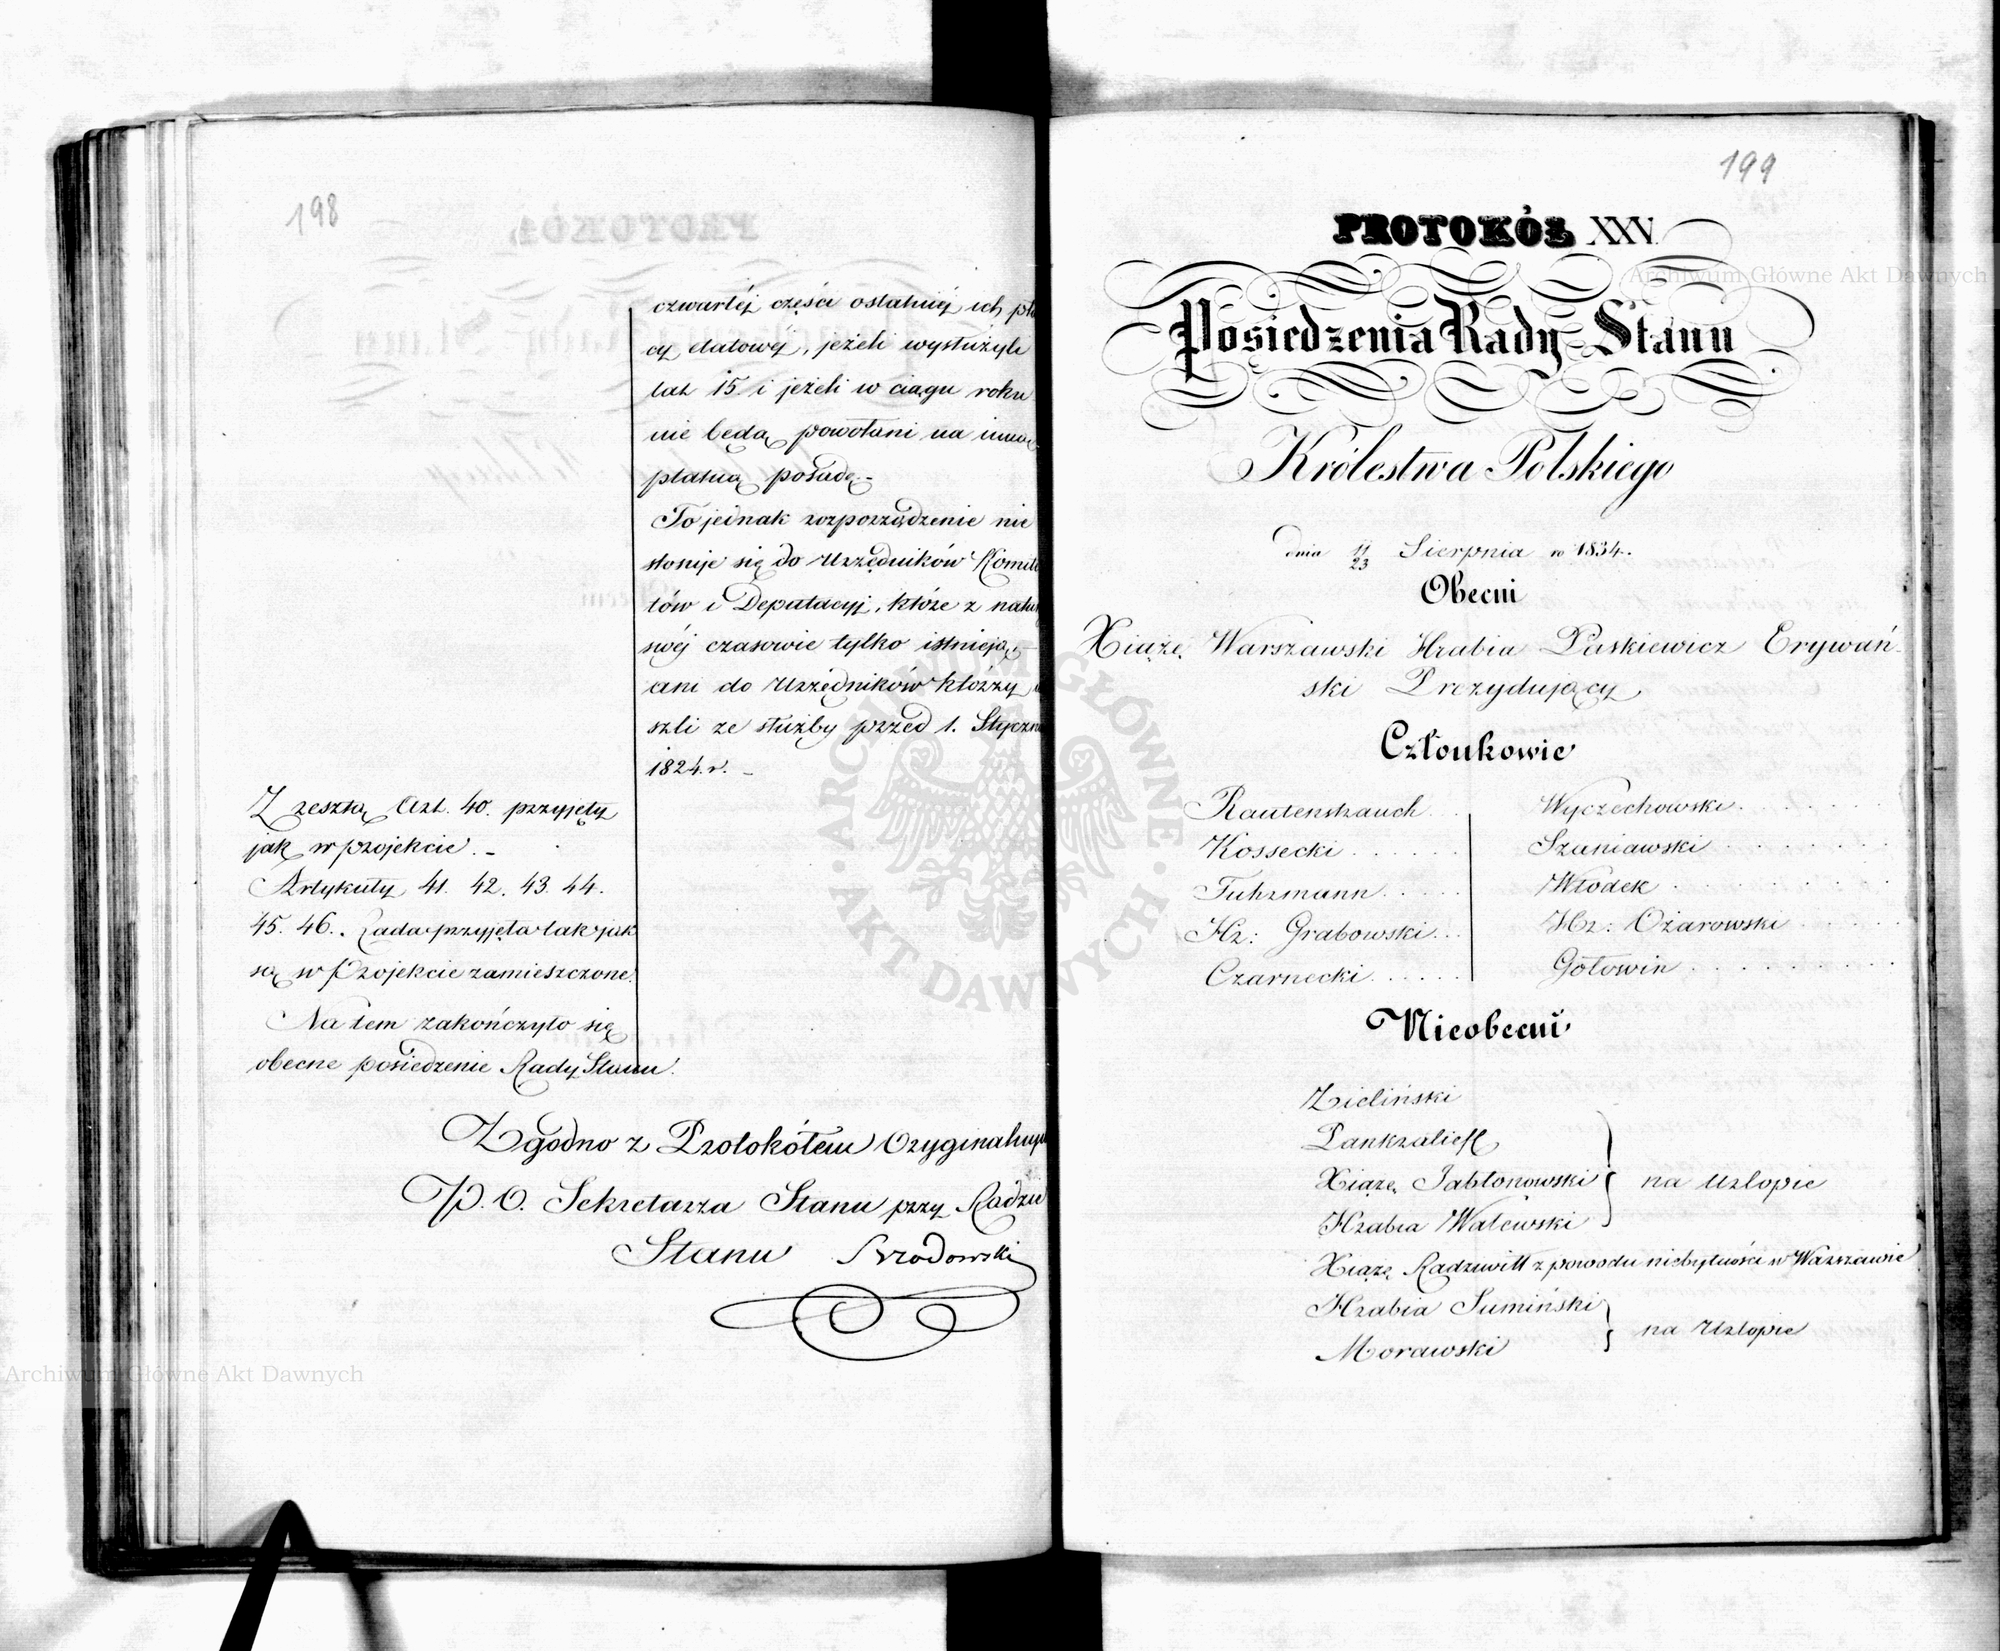 198
czwartéj części ostatniéj ich pła
cy etatowéj, jeżeli wysłużyli
lat 15. i jeżeli w ciągu roku
nie będą powołani na inną
płatną posadę. –
To jednak rozporządzenie nie
stosuje się do Urzędników Komite
tów i Deputacyj, które z natury
swéj czasowie tylko istnieją, –
ani do Urzędników którzy
szli ze służby przed 1. Stycznia
1824. r. –
Z resztą Art. 40. przyjęty
jak w projekcie. –
Artykuły 41. 42. 43. 44.
45. 46. Rada przyjęła tak jak
są w Projekcie zamieszczone.
Na tem zakończyło się
obecne posiedzenie Rady Stanu.
Zgodno z Protokółem Oryginalnym
P. O. Sekretarza Stanu przy Radzie
Stanu Brodowski
199
PROTOKÓŁ XXV.
Posiedzenia Rady Stanu
Królestwa Polskiego
dnia 11/23 Sierpnia r. 1834.
Obecni
Xiążę Warszawski Hrabia Paskiewicz Erywań
ski Prezydujący
Członkowie
Rautenstrauch . . Wyczechowski . . . . . .
Kossecki . . . . . . Szaniawski . . . . . . .
Fuhrmann . . . . . Włodek . . . . . . . .
Hr: Grabowski . . . Hr: Ożarowski . . . . .
Czarnecki . . . . . Gołowin . . . . . . . .
Nieobecni
Zieliński
Pankratieff
Xiążę Jabłonowski na Urlopie
Hrabia Walewski
Xiążę Radziwiłł z powodu niebytności w Warszawie
Hrabia Sumiński
na Urlopie
Morawski
Archiwum Główne Akt Dawnych
Archiwum Główne Akt Dawnych
ARCHIWUM GŁÓWNE · AKT DAWNYCH ·